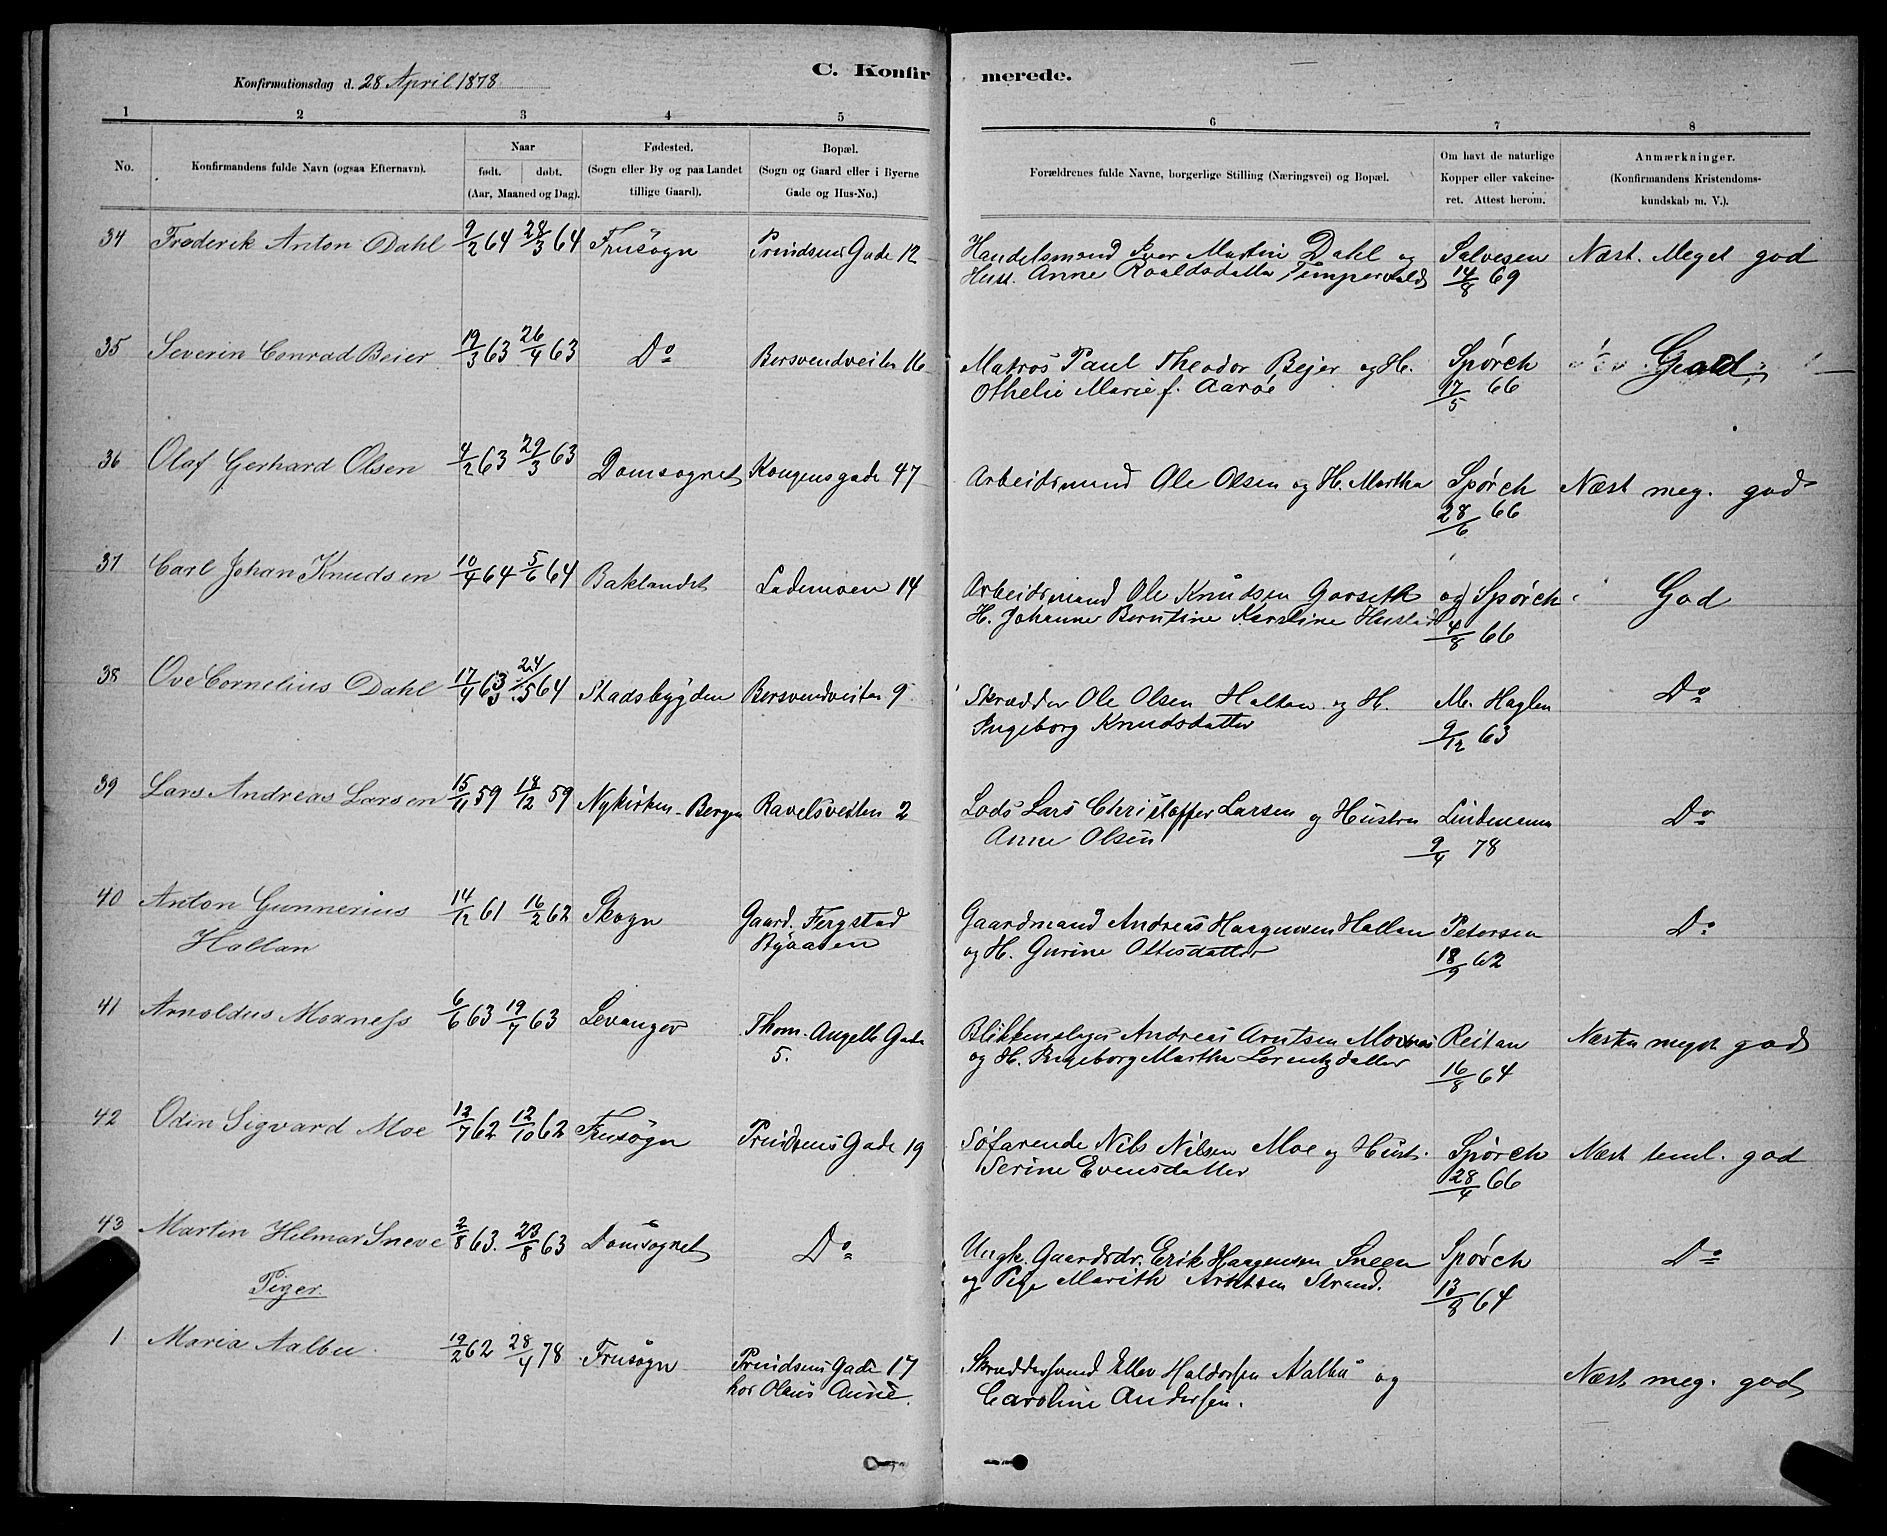 Konfirmationsdag d. 28 April 1878
C. Konfirmerede.
1 2 3 4 5 6 7 8
No. Konfirmandens fulde Navn (ogsaa Efternavn). Naar født. døbt. (Aar, Maaned og Dag). Fødested. (Sogn eller By og paa Landet tillige Gaard). Bopæl. (Sogn og Gaard eller i Byerne Gade og Hus-No.) Forældrenes fulde Navne, borgerlige Stilling (Næringsvei) og Bopæl. Om havt de naturlige Kopper eller vakcineret. Attest herom. Anmærkninger. (Konfirmandens Kristendomskundskab m. V.).
34 Frederik Anton Dahl 9/2 64 28/3 64 Frusogn Prindsens Gade 12 Handelsmand Iver Martin Dahl og Salvesen Næst. Meget god
Hust. Anne Roaldsdatter 14/8 69
35 Severin Conrad Beier 19/3 63 26/4 63 Do Bersvendveiten 16 Matros Paul Theodor Bejer og H. Spørck God
Othelie Marie f. Aarøe 17/5 66
36 Olaf Gerhard Olsen 4/2 63 29/3 63 Domsognet Kongensgade 47 Arbeidsmand Ole Olsen og H. Martha Spørck Næst meg. god
28/6 66
37 Carl Johan Knudsen 10/4 64 5/6 64 Baklandet Lademoen 14 Arbeidsmand Ole Knudsen Garseth og Spørck God
H. Johanne Berntine Karoline 4/8 66
38 Ove Cornelius Dahl 17/4 63 24/5 64 Stadsbygden Bersvendveiten 9 Skrædder Ole Olsen Haltan og H. M. Haglen Do
Ingeborg Knudsdatter 9/12 63
39 Lars Andreas Larsen 15/11 59 18/12 59 Nykirken - Bergen Ravelsveiten 2 Lods Lars Christoffer Larsen og Hustru Lindemann Do
Anne Olsen 9/4 78
40 Anton Gunnerius 14/12 61 16/2 62 Skogn Gaard. Fergstad Gaardmand Andreas Haagensen Hallan Petersen Do
Hallan Byaasen og H. Gurine Ottesdatter 18/9 62
41 Arnoldus Moxness 6/6 63 19/7 63 Levanger Thom. Angells Gade Blikkenslager Andreas Arntsen Moxnes Reitan Næsten meget god
5. og H. Ingeborg Martha Lorentzdatter 16/8 64
42 Odin Sigvard Moe 12/7 62 12/10 62 Frusogn Prindsens Gade 19 Søfarende Nils Nilsen Moe og Hust. Spørck Næst teml. god
Serine Evensdatter 28/4 66
43 Martin Hilmar Sneve 2/8 63. 23/8 63 Domsognet Do Ungk. Gaardsdr. Erik Haagensen Sneen Spørck Do
og Pige Marith Arntsen Strand. 13/8 64
Piger
1 Maria Aalbu. 19/2 62 28/4 78 Frusogn Prindsens Gade 17 Skræddersvend Ellev Haldorsen Aalbu og Næst meg. god
hos Olaus Aune. Caroline Andersen.